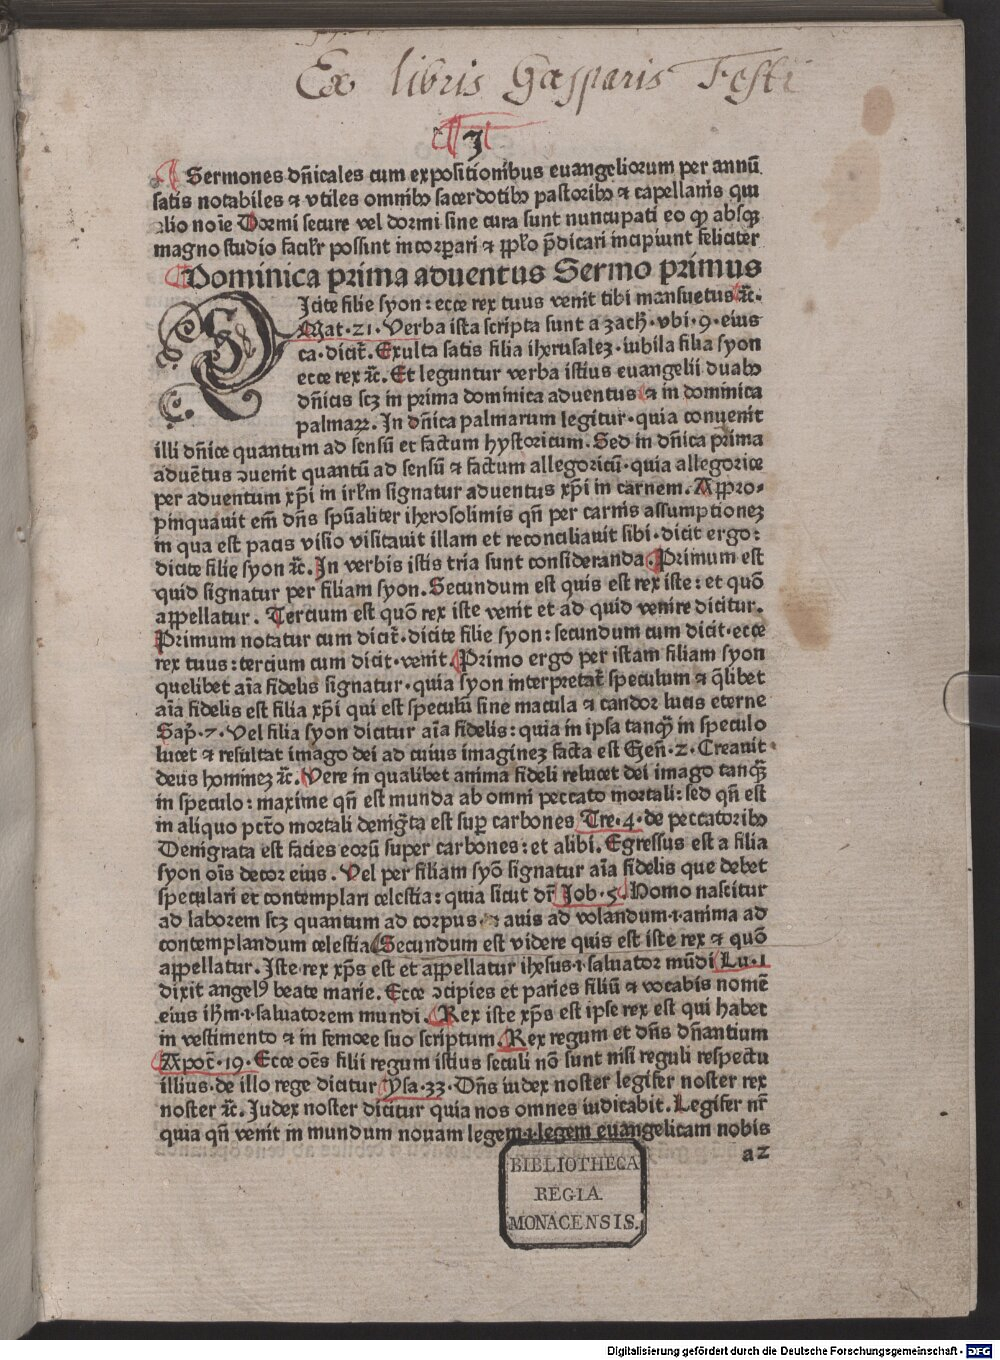 Ex libris Gasparis Festi
Sermones dn̄icales cum expositionibus euangeliorum per annū
satis notabiles ⁊ vtiles omnibꝰ sacerdotibꝰ pastoribꝰ ⁊ capellanis qui
alio noīe Dormi secure vel dormi sine cura sunt nuncupati eo ꝙ absqꝫ
magno studio facilr possint incorꝑari ⁊ ꝓplo p̄dicari incipiunt feliciter
Dominica prima aduentus Sermo primus
Dicite filie syon : ecce rex tuus venit tibi mansuetus ⁊c̄.
Mat·21· Verba ista scripta sunt a zach̄·vbi·9·eius
ca·dicit̄. Exulta satis filia iherusaleꝫ·iubila filia syon
ecce rex ⁊c̄. Et leguntur verba istius euangelii duabꝰ
dn̄icis scꝫ in prima dominica aduentus ⁊ in dominica
palmaꝝ. In dn̄ica palmarum legitur·quia conuenit
illi dn̄ice quantum ad sensū et factum hystoricum. Sed in dn̄ica prima
aduētus ꝯuenit quantū ad sensū ⁊ factum allegoricū·quia allegorice
per aduentum xp̄i in irl̄m signatur aduentus xp̄i in carnem. Appro-
pinquauit em̄ dn̄s spūaliter iherosolimis qn̄ per carnis assumptioneꝫ
in qua est pacis visio visitauit illam et reconciliauit sibi·dicit ergo:
dicite filie syon ⁊c̄. In verbis istis tria sunt consideranda. Primum est
quid signatur per filiam syon. Secundum est quis est rex iste : et quō
appellatur. Tercium est quō rex iste venit et ad quid venire dicitur.
Primum notatur cum dicit̄·dicite filie syon : secundum cum dicit·ecce
rex tuus : tercium cum dicit·venit. Primo ergo per istam filiam syon
quelibet aīa fidelis signatur·quia syon interpretat̄ speculum ⁊ q̄libet
aīa fidelis est filia xp̄i qui est speculū sine macula ⁊ candor lucis eterne
Sap̄·7· Vel filia syon dicitur aīa fidelis : quia in ipsa tanqꝫ in speculo
lucet ⁊ resultat imago dei ad cuius imagineꝫ facta est Gen̄·2· Creauit
deus homineꝫ ⁊c̄. Vere in qualibet anima fideli relucet dei imago tanqꝫ
in speculo : maxime qn̄ est munda ab omni peccato mortali : sed qn̄ est
in aliquo pctō mortali denigrata est suꝑ carbones Tre·4·de peccatoribꝰ
Denigrata est facies eorū super carbones : et alibi. Egressus est a filia
syon oīs decor eius. Vel per filiam syō signatur aīa fidelis que debet
speculari et contemplari celestia : quia sicut dr̄ Iob·5· Homo nascitur
ad laborem scꝫ quantum ad corpus·⁊ auis ad volandum·i·anima ad
contemplandum celestia Secundum est videre quis est iste rex ⁊ quō
appellatur. Iste rex xp̄s est et appellatur ihesus·i·saluator mūdi Lu·1
dixit angelꝰ beate marie. Ecce ꝯcipies et paries filiū ⁊ vocabis nomē
eius ihm̄·i·saluatorem mundi. Rex iste xp̄s est ipse rex est qui habet
in vestimento ⁊ in femore suo scriptum. Rex regum et dn̄s dn̄antium
Apoc̄·19· Ecce oēs filii regum istius seculi nō sunt nisi reguli respectu
illius·de illo rege dicitur Ysa·33· Dn̄s iudex noster legifer noster rex
noster ⁊c̄. Iudex noster dicitur quia nos omnes iudicabit. Legifer nr̄
quia qn̄ venit in mundum nouam legem·i·legem euangelicam nobis
a2
BIBLIOTHECA
REGIA
MONACENSIS.
Digitalisierung gefördert durch die Deutsche Forschungsgemeinschaft - DFG